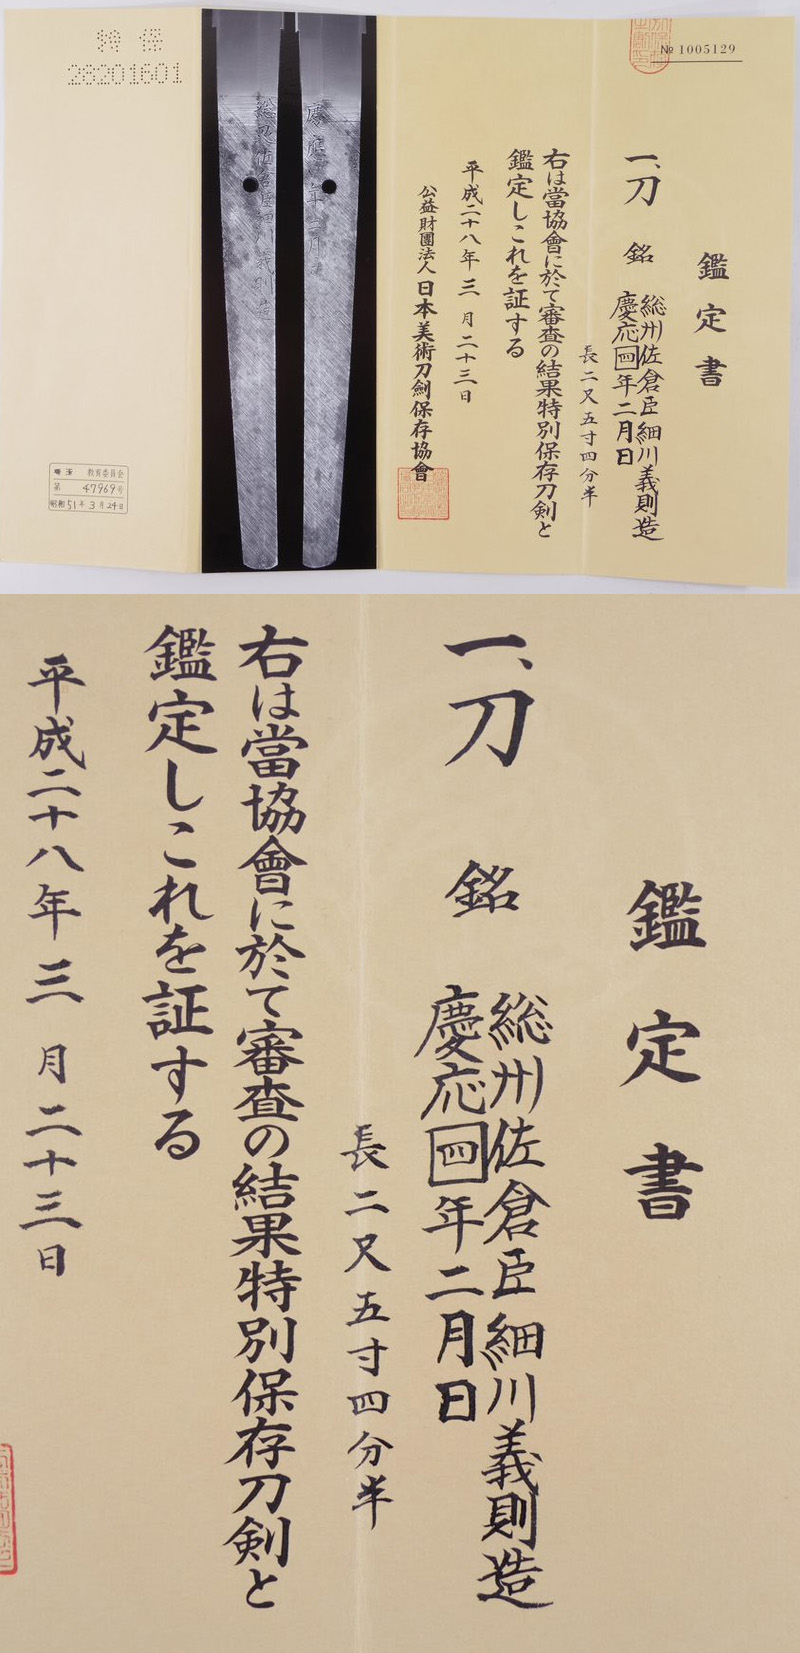 № 1005129
鑑定書
一、刀 銘 総州佐倉臣細川義則造
慶応四年二月日
長二尺五寸四分半
右は當協會に於て審査の結果特別保存刀剣と
鑑定しこれを証する
平成二十八年三月二十三日
公益財團法人日本美術刀劍保存協會
慶應四年二月日
総州佐倉臣細川義則造
特保
28201601
埼玉 教育委員会
第 47969号
昭和51年3月24日
鑑定書
一、刀 銘 総州佐倉臣細川義則造
慶応四年二月日
長二尺五寸四分半
右は當協會に於て審査の結果特別保存刀剣と
鑑定しこれを証する
平成二十八年三月二十三日